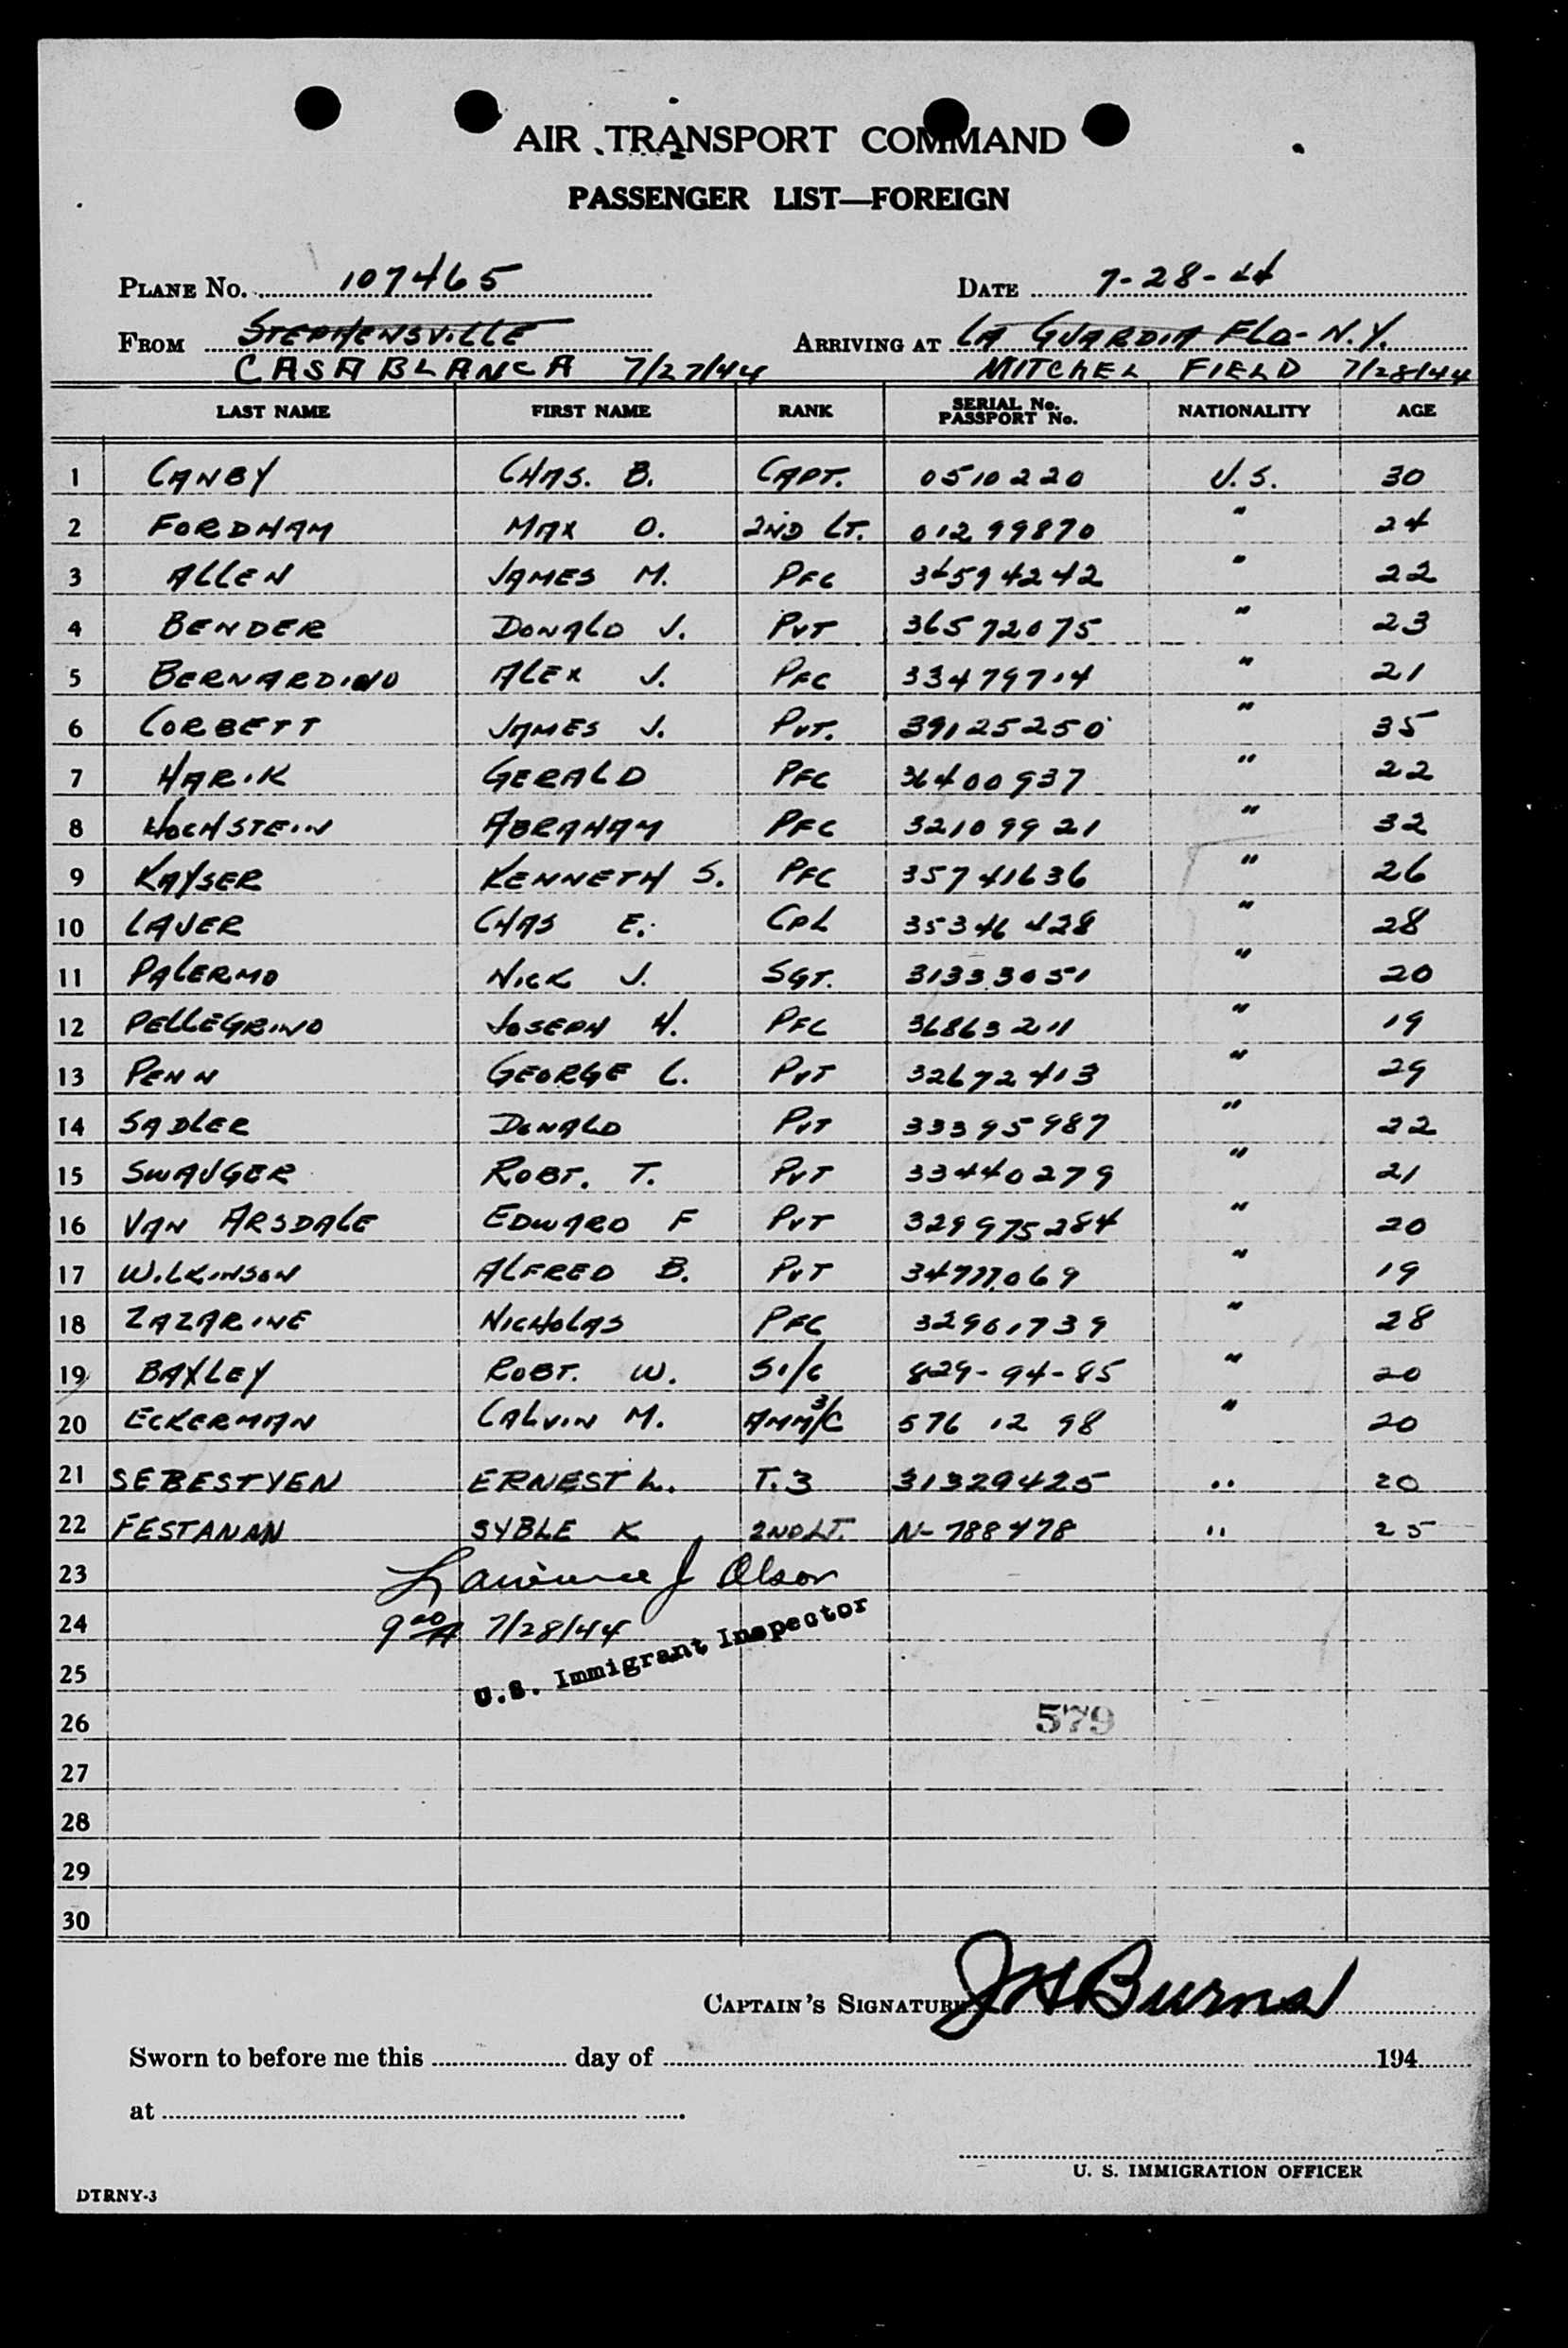 AIR TRANSPORT COMMAND
PASSENGER LIST—FOREIGN
PLANE No. 107465 DATE 7-28-44
FROM STEPHENSVILLE ARRIVING AT LA GUARDIA FLD- N.Y.
CASABLANCA 7/27/44 MITCHEL FIELD 7/28/44
LAST NAME FIRST NAME RANK SERIAL No. PASSPORT No. NATIONALITY AGE
1 CANBY CHAS. B. CAPT. 0510220 U.S. 30
2 FORDHAM MAX O. 2ND LT. 01299870 " 24
3 ALLEN JAMES M. PFC 34594242 " 22
4 BENDER DONALD J. PVT 36572075 " 23
5 BERNARDINO ALEX J. PFC 33479714 " 21
6 CORBETT JAMES J. PVT. 39125250 " 35
7 HARIK GERALD PFC 36400937 " 22
8 HOCHSTEIN ABRAHAM PFC 32109921 " 32
9 KAYSER KENNETH S. PFC 35741636 " 26
10 LAUER CHAS E. CPL 35346428 " 28
11 PALERMO NICK J. SGT. 31333051 " 20
12 PELLEGRINO JOSEPH H. PFC 36863211 " 19
13 PENN GEORGE C. PVT 32672413 " 29
14 SADLER DONALD PVT 33395987 " 22
15 SWAUGER ROBT. T. PVT 33440279 " 21
16 VAN ARSDALE EDWARD F PVT 329975284 " 20
17 WILKINSON ALFRED B. PVT " 19
18 ZAZARINE NICHOLAS PFC 32961739 " 28
19 BAXLEY ROBT. W. S1/C 829-94-85 " 20
20 ECKERMAN CALVIN M. AMM3/C 576 12 98 " 20
21 SEBESTYEN ERNEST L. T.3 31329425 " 20
22 FESTANAN SYBLE K 2ND LT. N-788478 " 25
23 Lawrence J Olson
24 9 00 A 7/28/44
U.S. Immigrant Inspector
25
26 579
27
28
29
30
CAPTAIN'S SIGNATURE JH Burns
Sworn to before me this day of 194
at
U. S. IMMIGRATION OFFICER
DTRNY-3